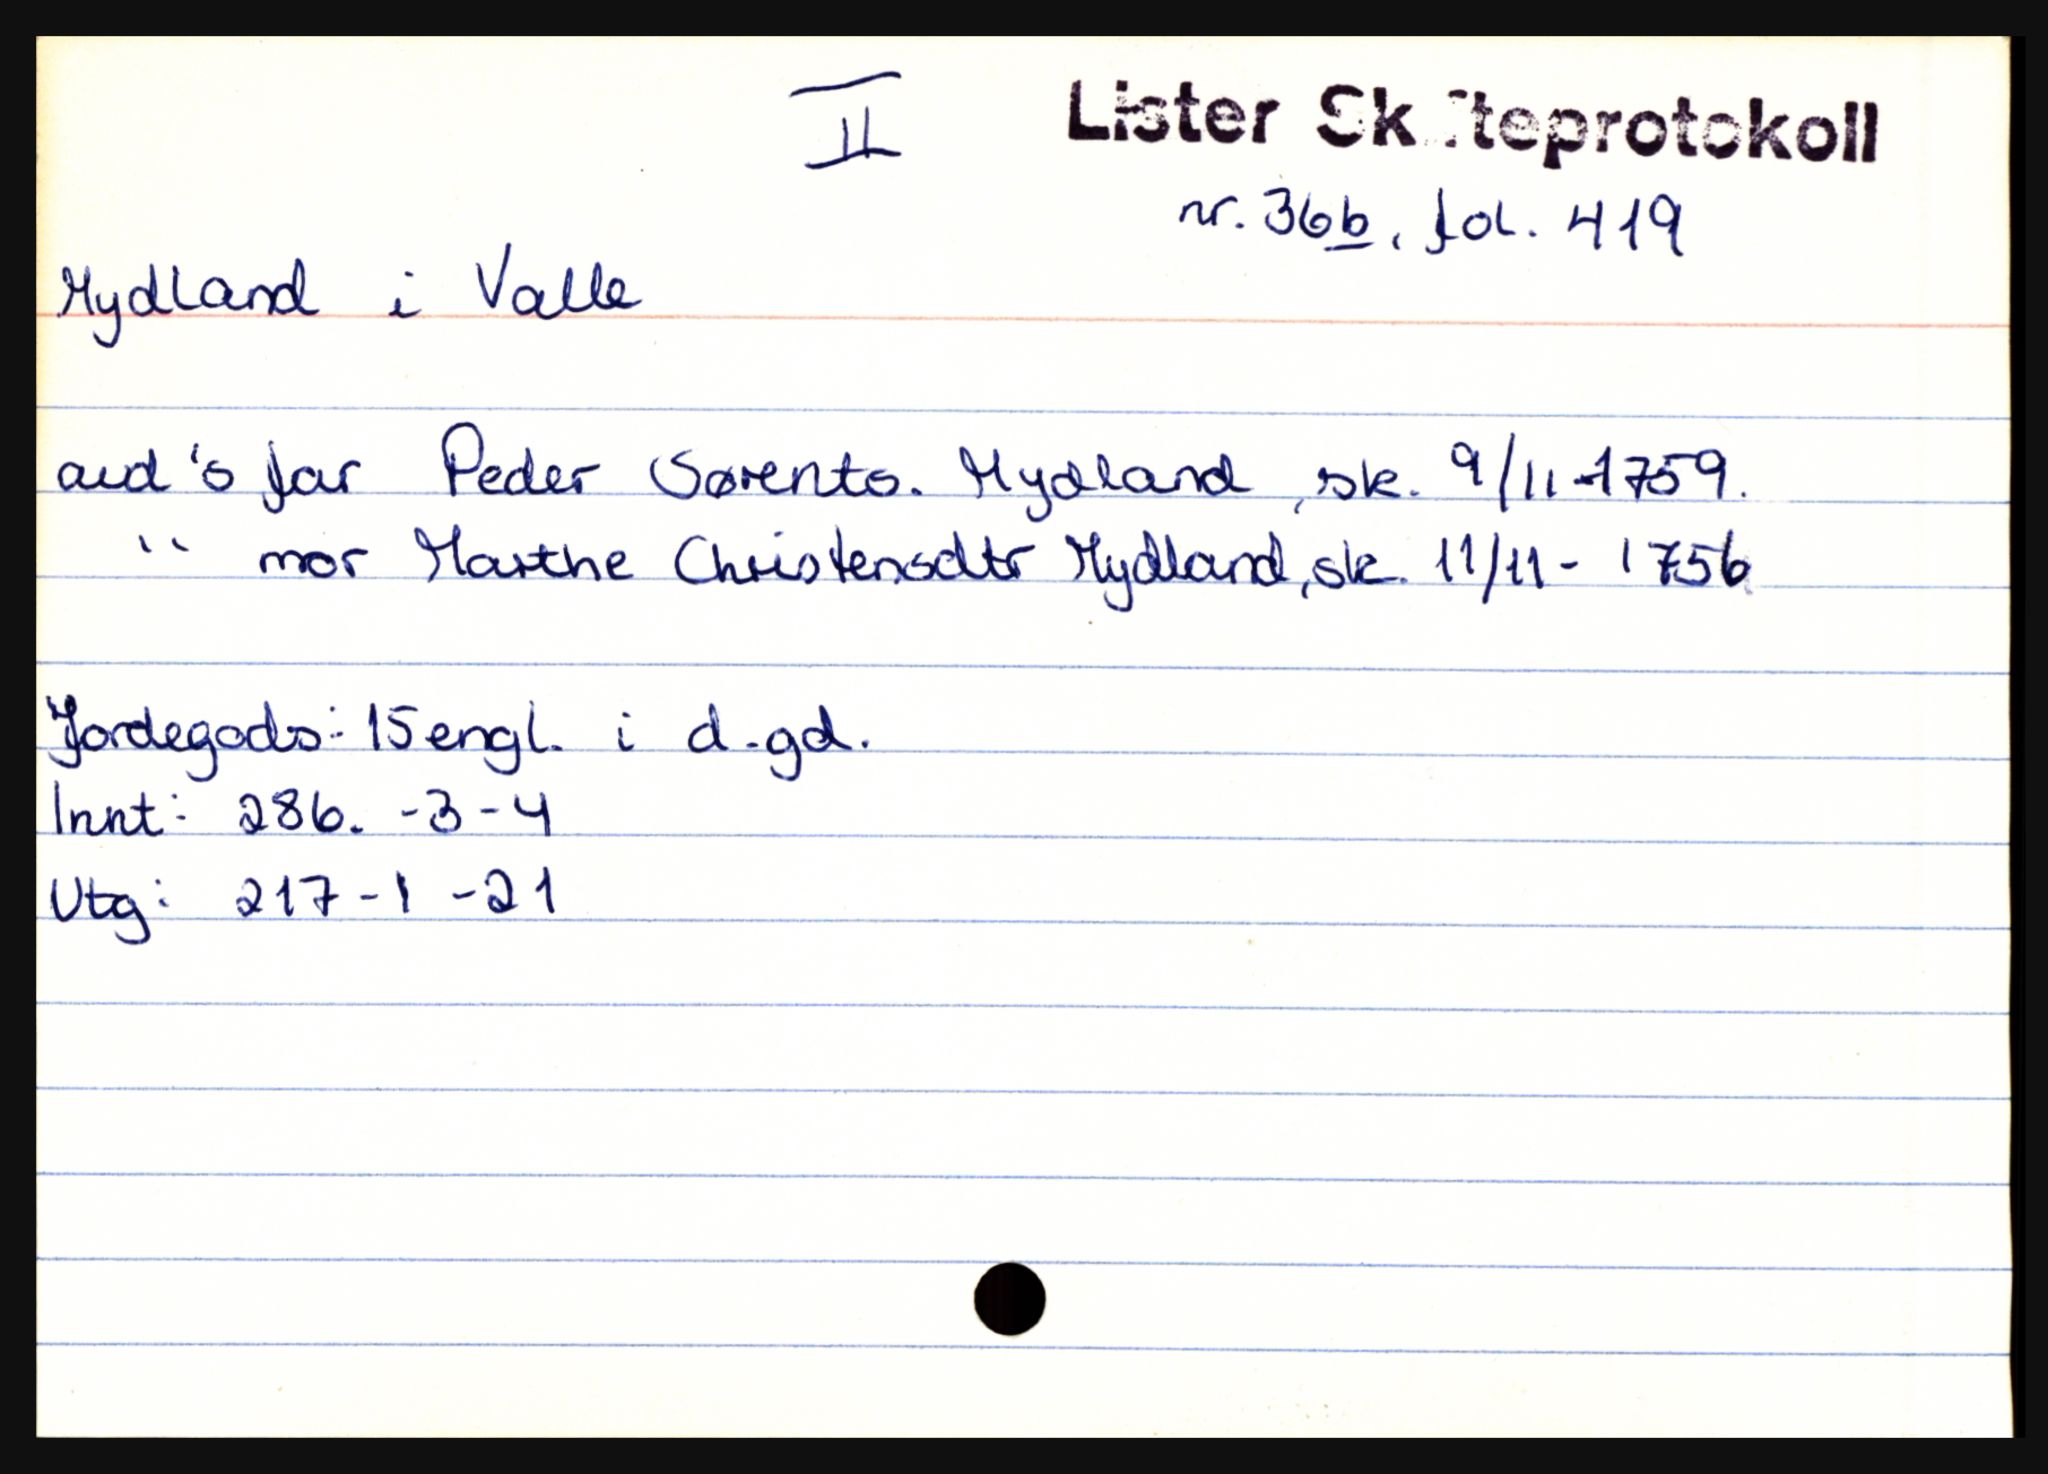 II
Lister Skifteprotokoll
nr. 36b, fol. 419
Mydland i Valle
avd's far Peder Sørents. Mydland, sk. 9/11-1759.
" mor Marthe Christensdtr Mydland, sk. 11/11-1756
Jordegods: 15 engl. i d.gd.
Innt: 286.-3-4
Utg: 217-1-21